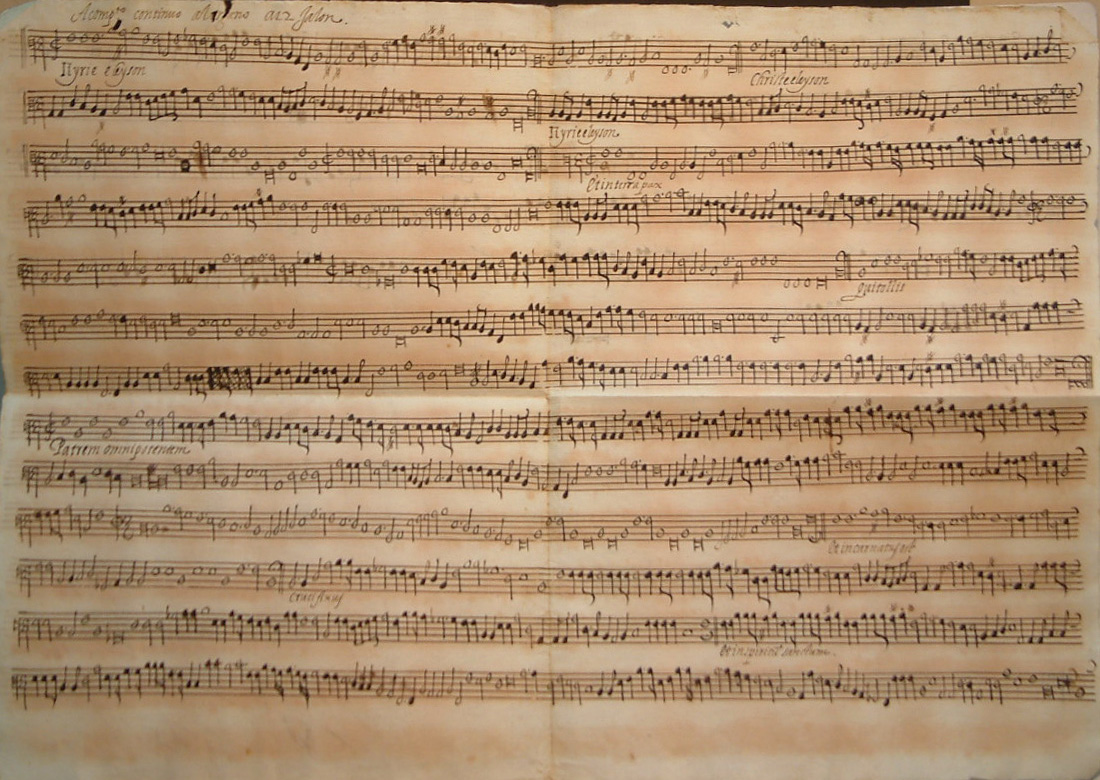 Acomp.to continuo a12
Kyrie eleyson
Christe eleyson
Kyrie eleyson
Et in terra pax
qui tollis
Patrem omnipotentem
Et incarnatus est
Crucifixus
Et in spiritũ sanctum.